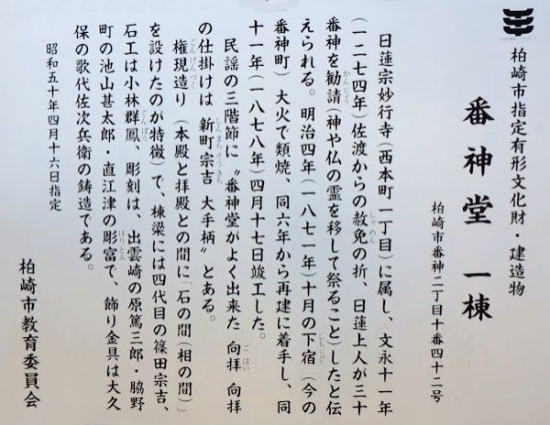 柏崎市指定有形文化財・建造物
番神堂 一棟
柏崎市番神二丁目十番四十二号
日蓮宗妙行寺(西本町一丁目)に属し、文永十一年
(一二七四年)佐渡からの赦免の折、日蓮上人が三十
番神を勧請(神や仏の霊を移して祭ること)したと伝
えられる。明治四年(一八七一年)十月の下宿(今の
番神町)大火で類焼、同六年から再建に着手し、同
十一年(一八七八年)四月十七日竣工した。
民謡の三階節に〝番神堂がよく出来た 向拝 向拝
の仕掛けは 新町宗吉 大手柄〟とある。
権現造り(本殿と拝殿との間に「石の間(相の間)」
を設けたのが特徴)で、棟梁には四代目の篠田宗吉、
石工は小林群鳳、彫刻は、出雲崎の原篤三郎・脇野
町の池山甚太郎・直江津の彫富で、飾り金具は大久
保の歌代佐次兵衛の鋳造である。
昭和五十年四月十六日指定
柏崎市教育委員会